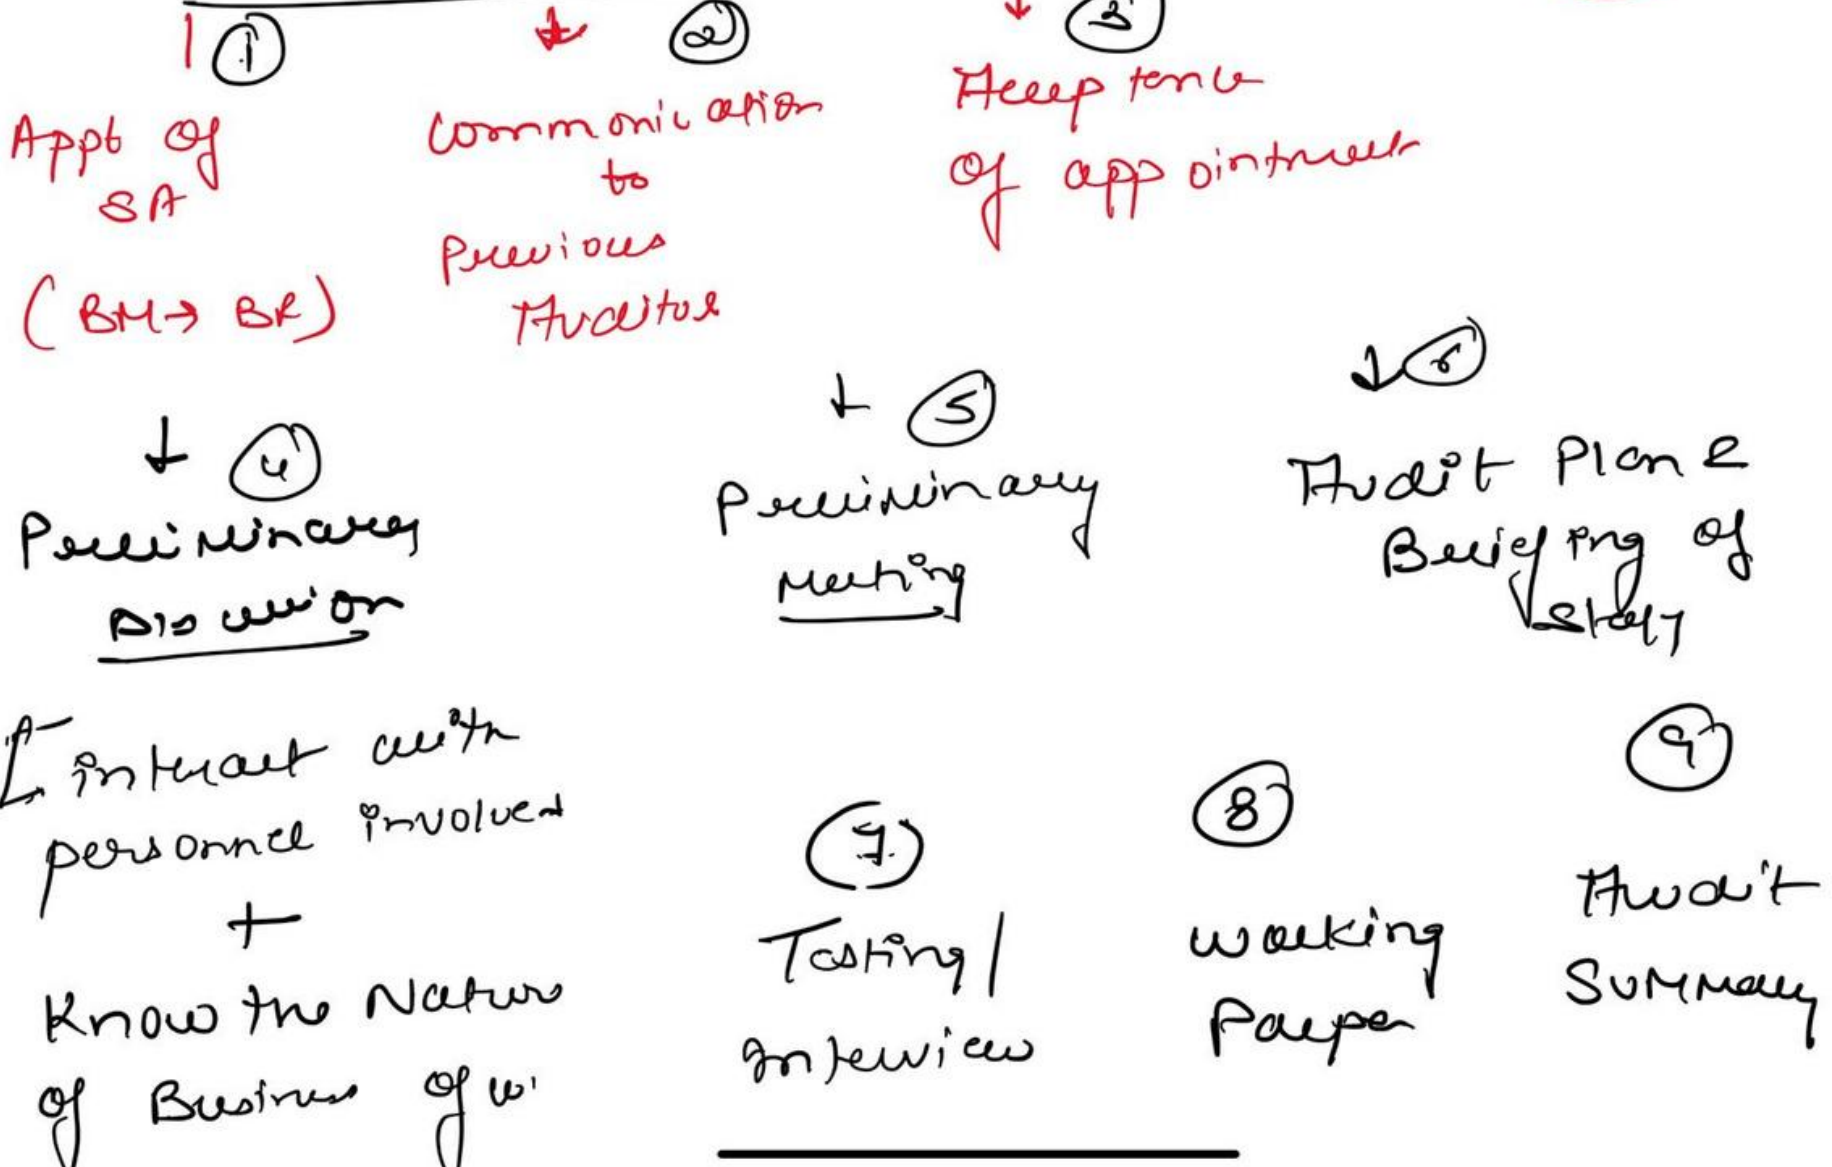 1
Appt of
SA
(BM→ BR)
2
Communication
to
Previous
Auditor
3
Acceptence
of appointment
4
Preliminary
Discussion
interact with
personnel involved
+
Know the Nature
of Business of
5
Preliminary
Meeting
6
Audit Plan &
Briefing of
Staff
7
Testing/
Interview
8
Working
Paper
9
Audit
Summary